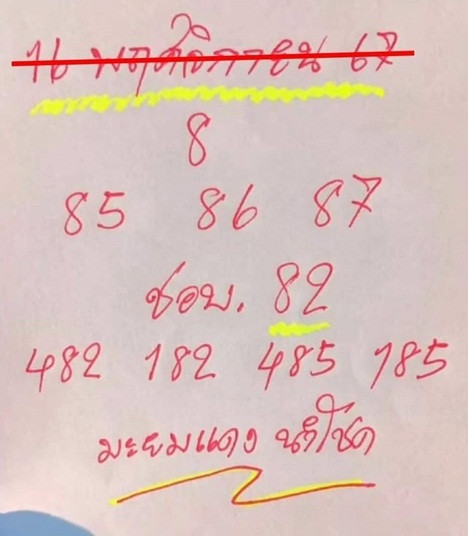 16 พฤศจิกายน 67
8
85 86 87
ชอบ. 82
482 182 485 185
มะยมแดง นำโชค